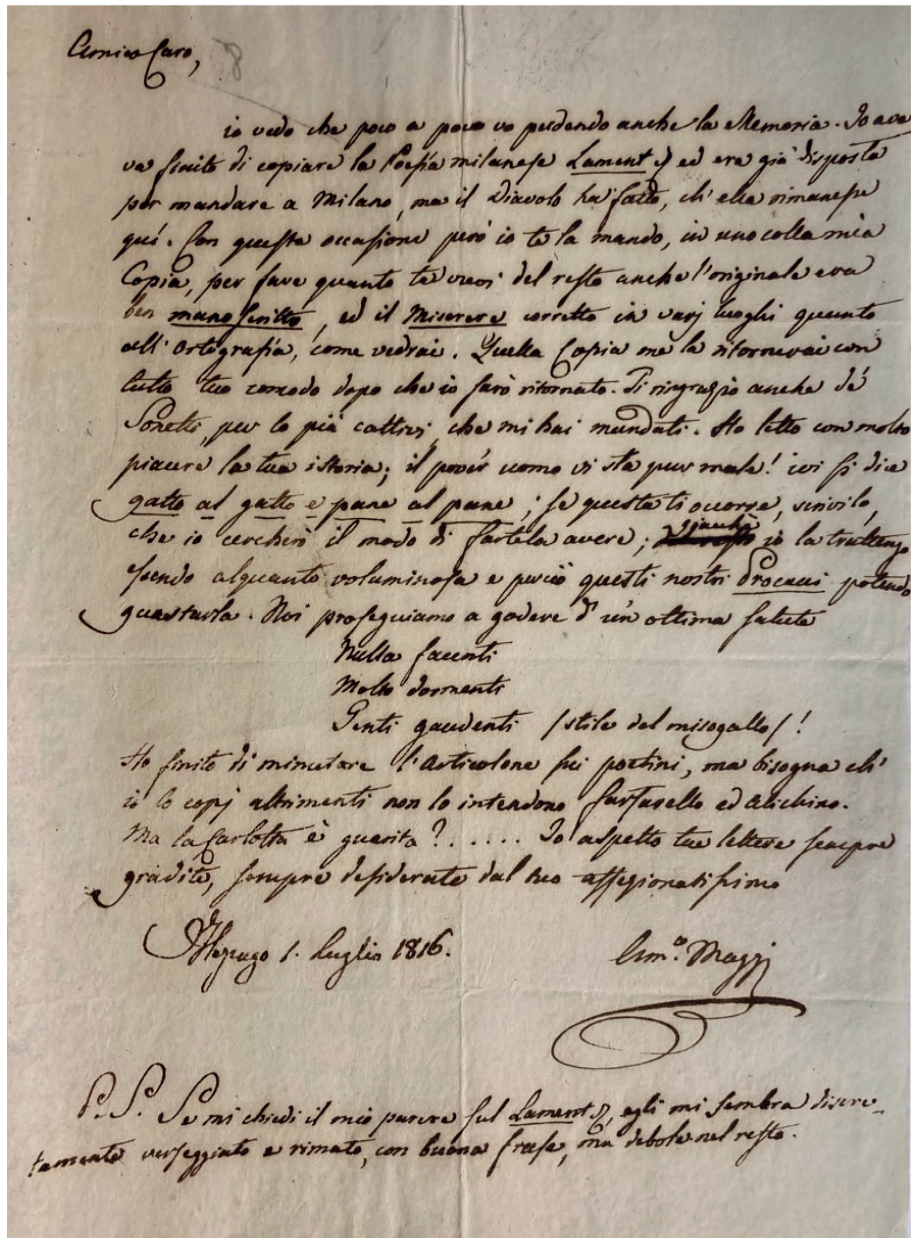 Amico Caro,
io vedo che poco a poco vo perdendo anche la Memoria. Io ave
va finito di copiare la Poesia milanese Lament &) ed era già disposta
per mandare a Milano, ma il Diavolo ha fatto, ch' ella rimanesse
qui. Con questa occasione però io te la mando, in uno colla mia
Copia, per fare quanto te vuoi del resto anche l'originale era
ben manoscritto, ed il Miserere corretto in varj luoghi quanto
all' Ortografia, come vedrai. Quella Copia me la ritornerai con
tutto tuo comodo dopo che io sarò ritornato. Ti ringrazio anche dé
Sonetti, per lo più cattivi, che mi hai mandati. Ho letto con molto
piacere la tua istoria; il povér uomo vi sta pur male! ivi si dice
gatto al gatto e pane al pane; se questa ti occorre, scrivilo,
che io cercherò il modo di fartela avere; giacchè io la trattengo
sendo alquanto voluminosa e perciò questi nostri Procacci potendo
guastarla. Noi proseguiamo a godere d' un' ottima salute
Nulla facenti
Molto dormenti
Genti gaudenti /stile del misogallo/!
Ho finito di minutare l'Articolone sui poetini, ma bisogna ch'
io lo copj altrimenti non lo intendono Farfarello ed Alichino.
Ma la Carlotta è guarita? ..... Io aspetto tue lettere sempre
gradite, sempre desiderate dal tuo affezionatissimo
1. Luglio 1816.
Am.º Maggi
P. S. Se mi chiedi il mio parere sul Lament &, egli mi sembra discre-
tamente verseggiato e rimato, con buona frase, ma debole nel resto.